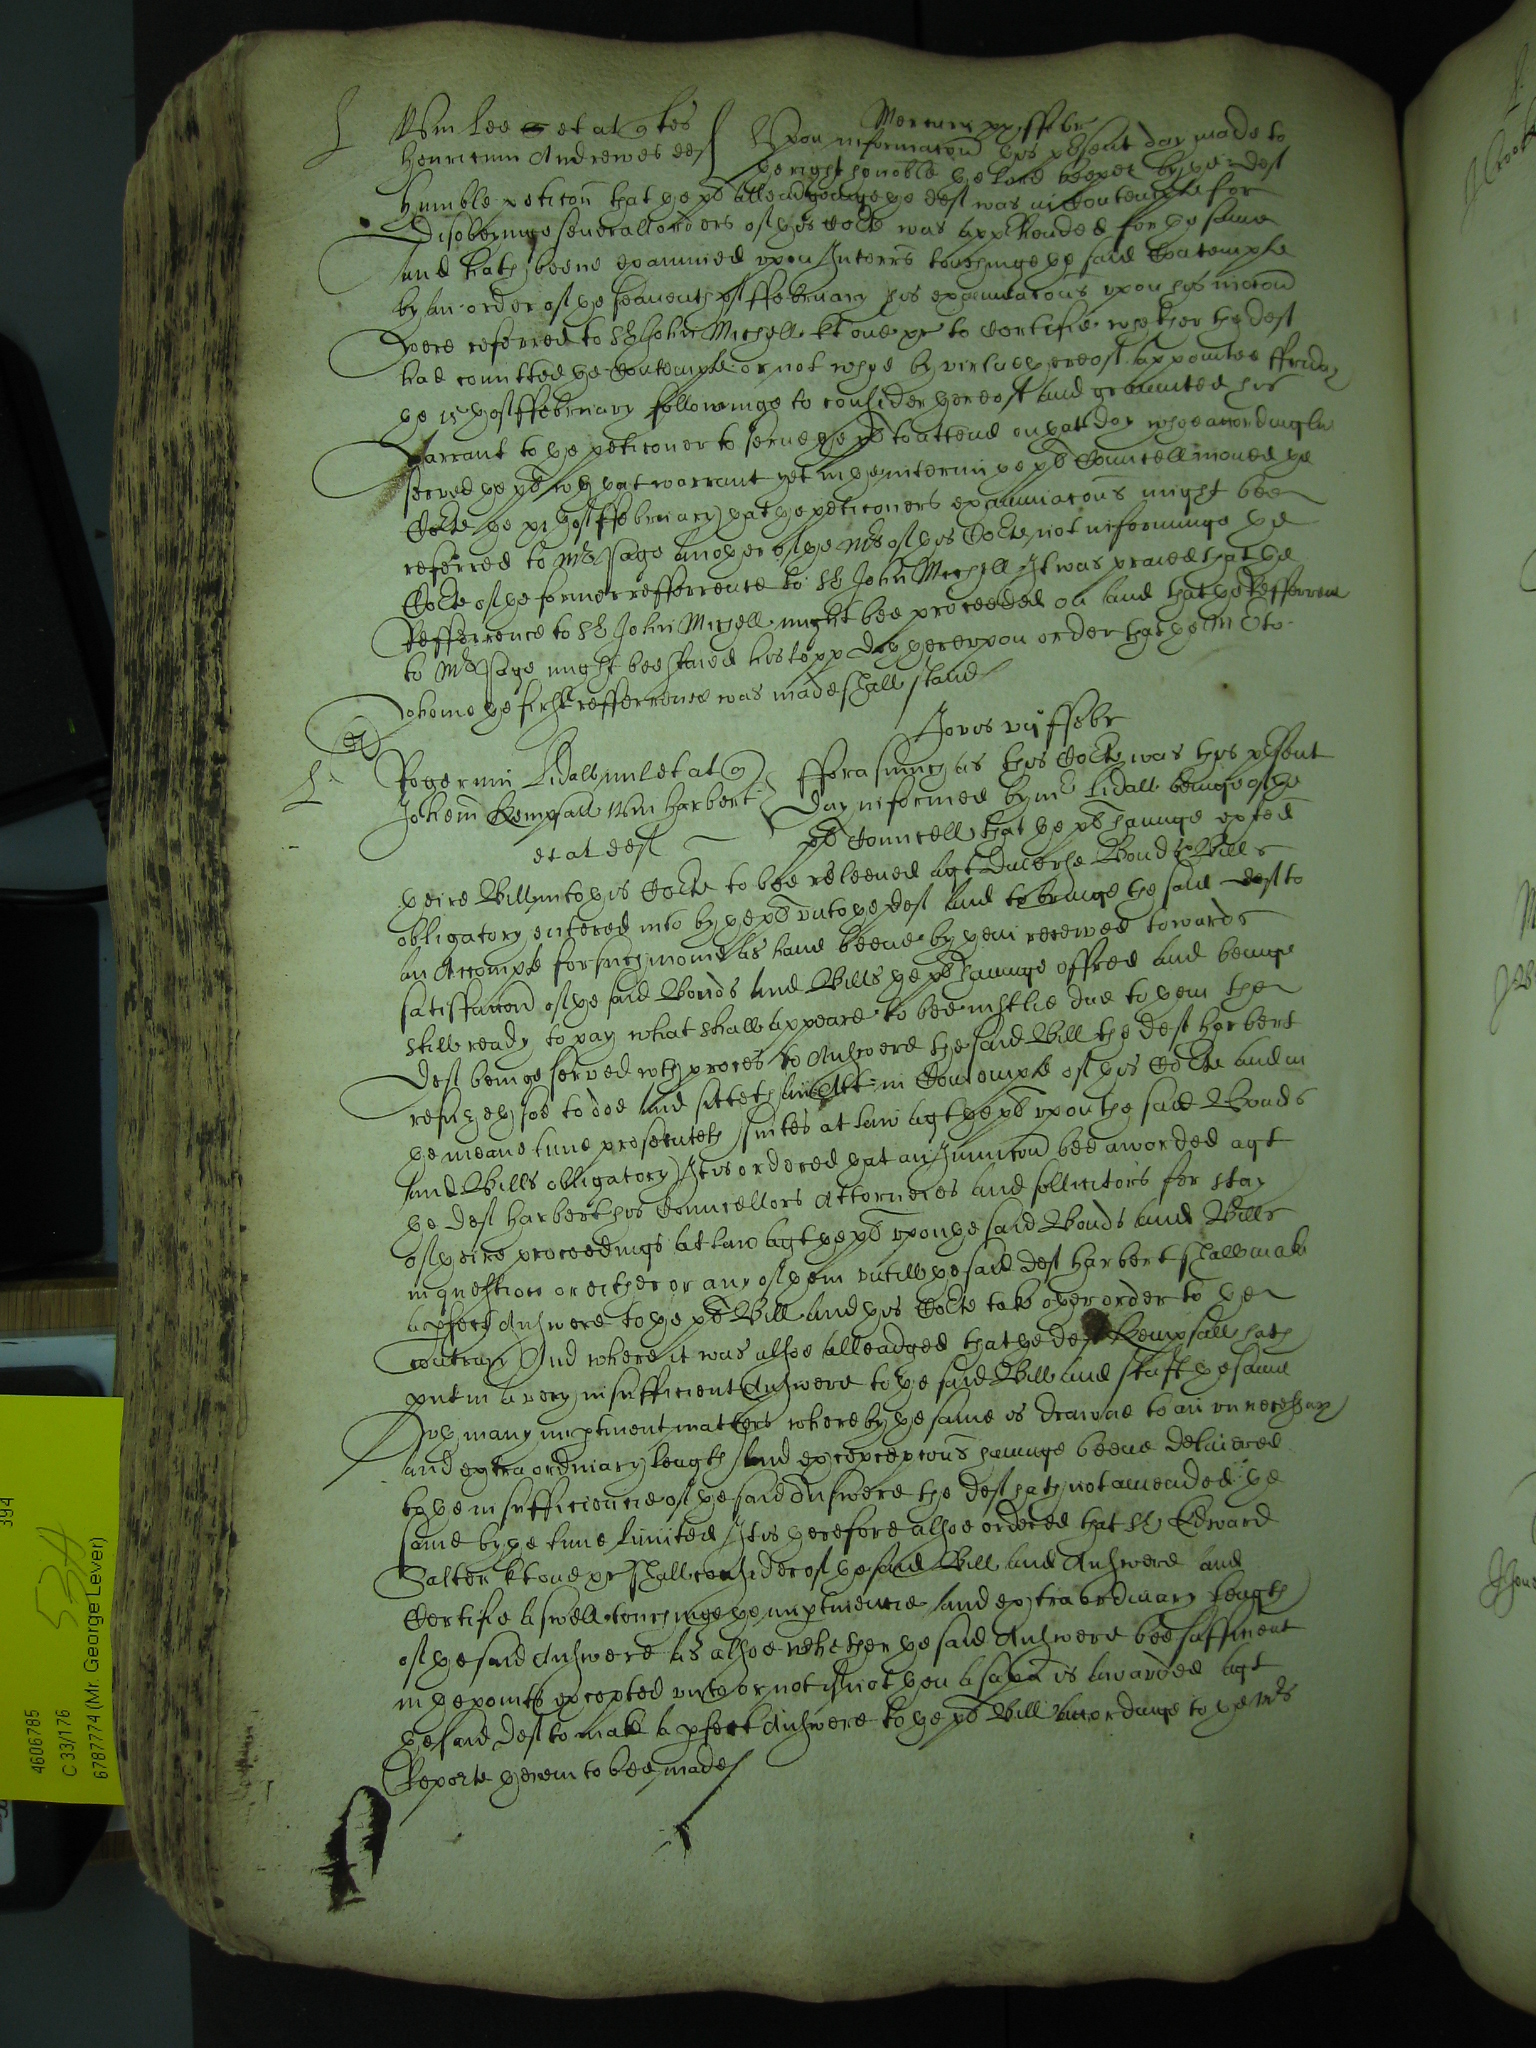 L
Wm Lee et al quer
Mercurij xxj ffebr
Henricum Andrewes def
Upon informacon this present day made to
the right honoble the Lord keeper by the def
humble peticon that the pl alleadginge the def was in contempte for
disobeyinge severall orders of this Corte was apprhended for the same
and hath beene examined upon Interr touchinge the said Contempte
by an order of the seaventh of ffebruary his examinacons upon his mocon
were referred to Sr John Michell kt one &c to certifie whether the def
had comitted the Contempte or not whoe by vertue thereof appointed ffriday
the 15th of ffebruary followinge to consider thereof and graunted his
warrant to the peticoner to serve the pl to attend on that day whoe accordingly
served the pl wth that warrant yet in the interim the pl Councell moved the
Corte the xjth of ffebruary that the peticoners examinacons might bee
referred to Mr Page another of the Mrs of this Corte not informinge the
Corte of the former refference to Sr John Michell It was praied that the
Refference to Sr John Michell might bee proceeded on and that the Refference
to Mr Page might bee staied his lopp doth thereupon order that the Mr to
whome the first refference was made shall stand
Jovis vij ffebr
L
Rogerum Lidall mil et al quer
Johem Kempsall Wm Harbert
et al def
fforasmuch as this Corte was this present
day informed by mr Lidall beinge of the
pl Councell that the pl havinge exhted
theire Bill into this Corte to bee releeved agt diverse Bonds & Bills
obligatory entered into by the pl unto the def and to bringe the said def to
an Accompte for such monie as have beene by them received towards
satisfaccon of the said Bonds and Bills the pl havinge offred and beinge
still ready to pay what shall appeare to bee justlie due to them the
def beinge served wth proces to Answere the said Bill the def Harbert
refuseth soe to doe and sitteth an Attt in Contempte of this Corte and in
the meane tyme prosecuteth suites at law agt the pl upon the said Bonds
and Bills obligatory It is ordered that an Iniunccon bee awarded agt
the def Harbert his Councellors Attorneies and sollicitors for stay
of theire proceedings at law agt the pl upon the said Bonds and Bills
in question or either or any of them untill the said def Harbert shall make
a pfect Answere to the pl Bill and this Corte take other order to the
contrary And where it was alsoe alleadged that the def Kempsall hath
put in a very insufficient Answere to the said Bill and stuft the same
wth many imptinent matters whereby the same is drawne to an unnecessary
and extraordinary length and exepcepcons havinge beene delivered
to the insufficiencie of the said Answere the def hath not amended the
same by the time limited It is therefore alsoe ordered that Sr Edward
Salter kt one &c shall consider of the said Bill and Answere and
Certifie aswell touchinge the imptinencie and extraordinary length
of the said Answere as alsoe whether the said Answere bee sufficient
in the points excepted unto or not if not then a spa is awarded agt
the said def to make a pfect Answere to the pl Bill accordinge to the Mrs
Reporte therein to bee made
394
534
4606785
C 33/176
6787774 (Mr. George Lever)